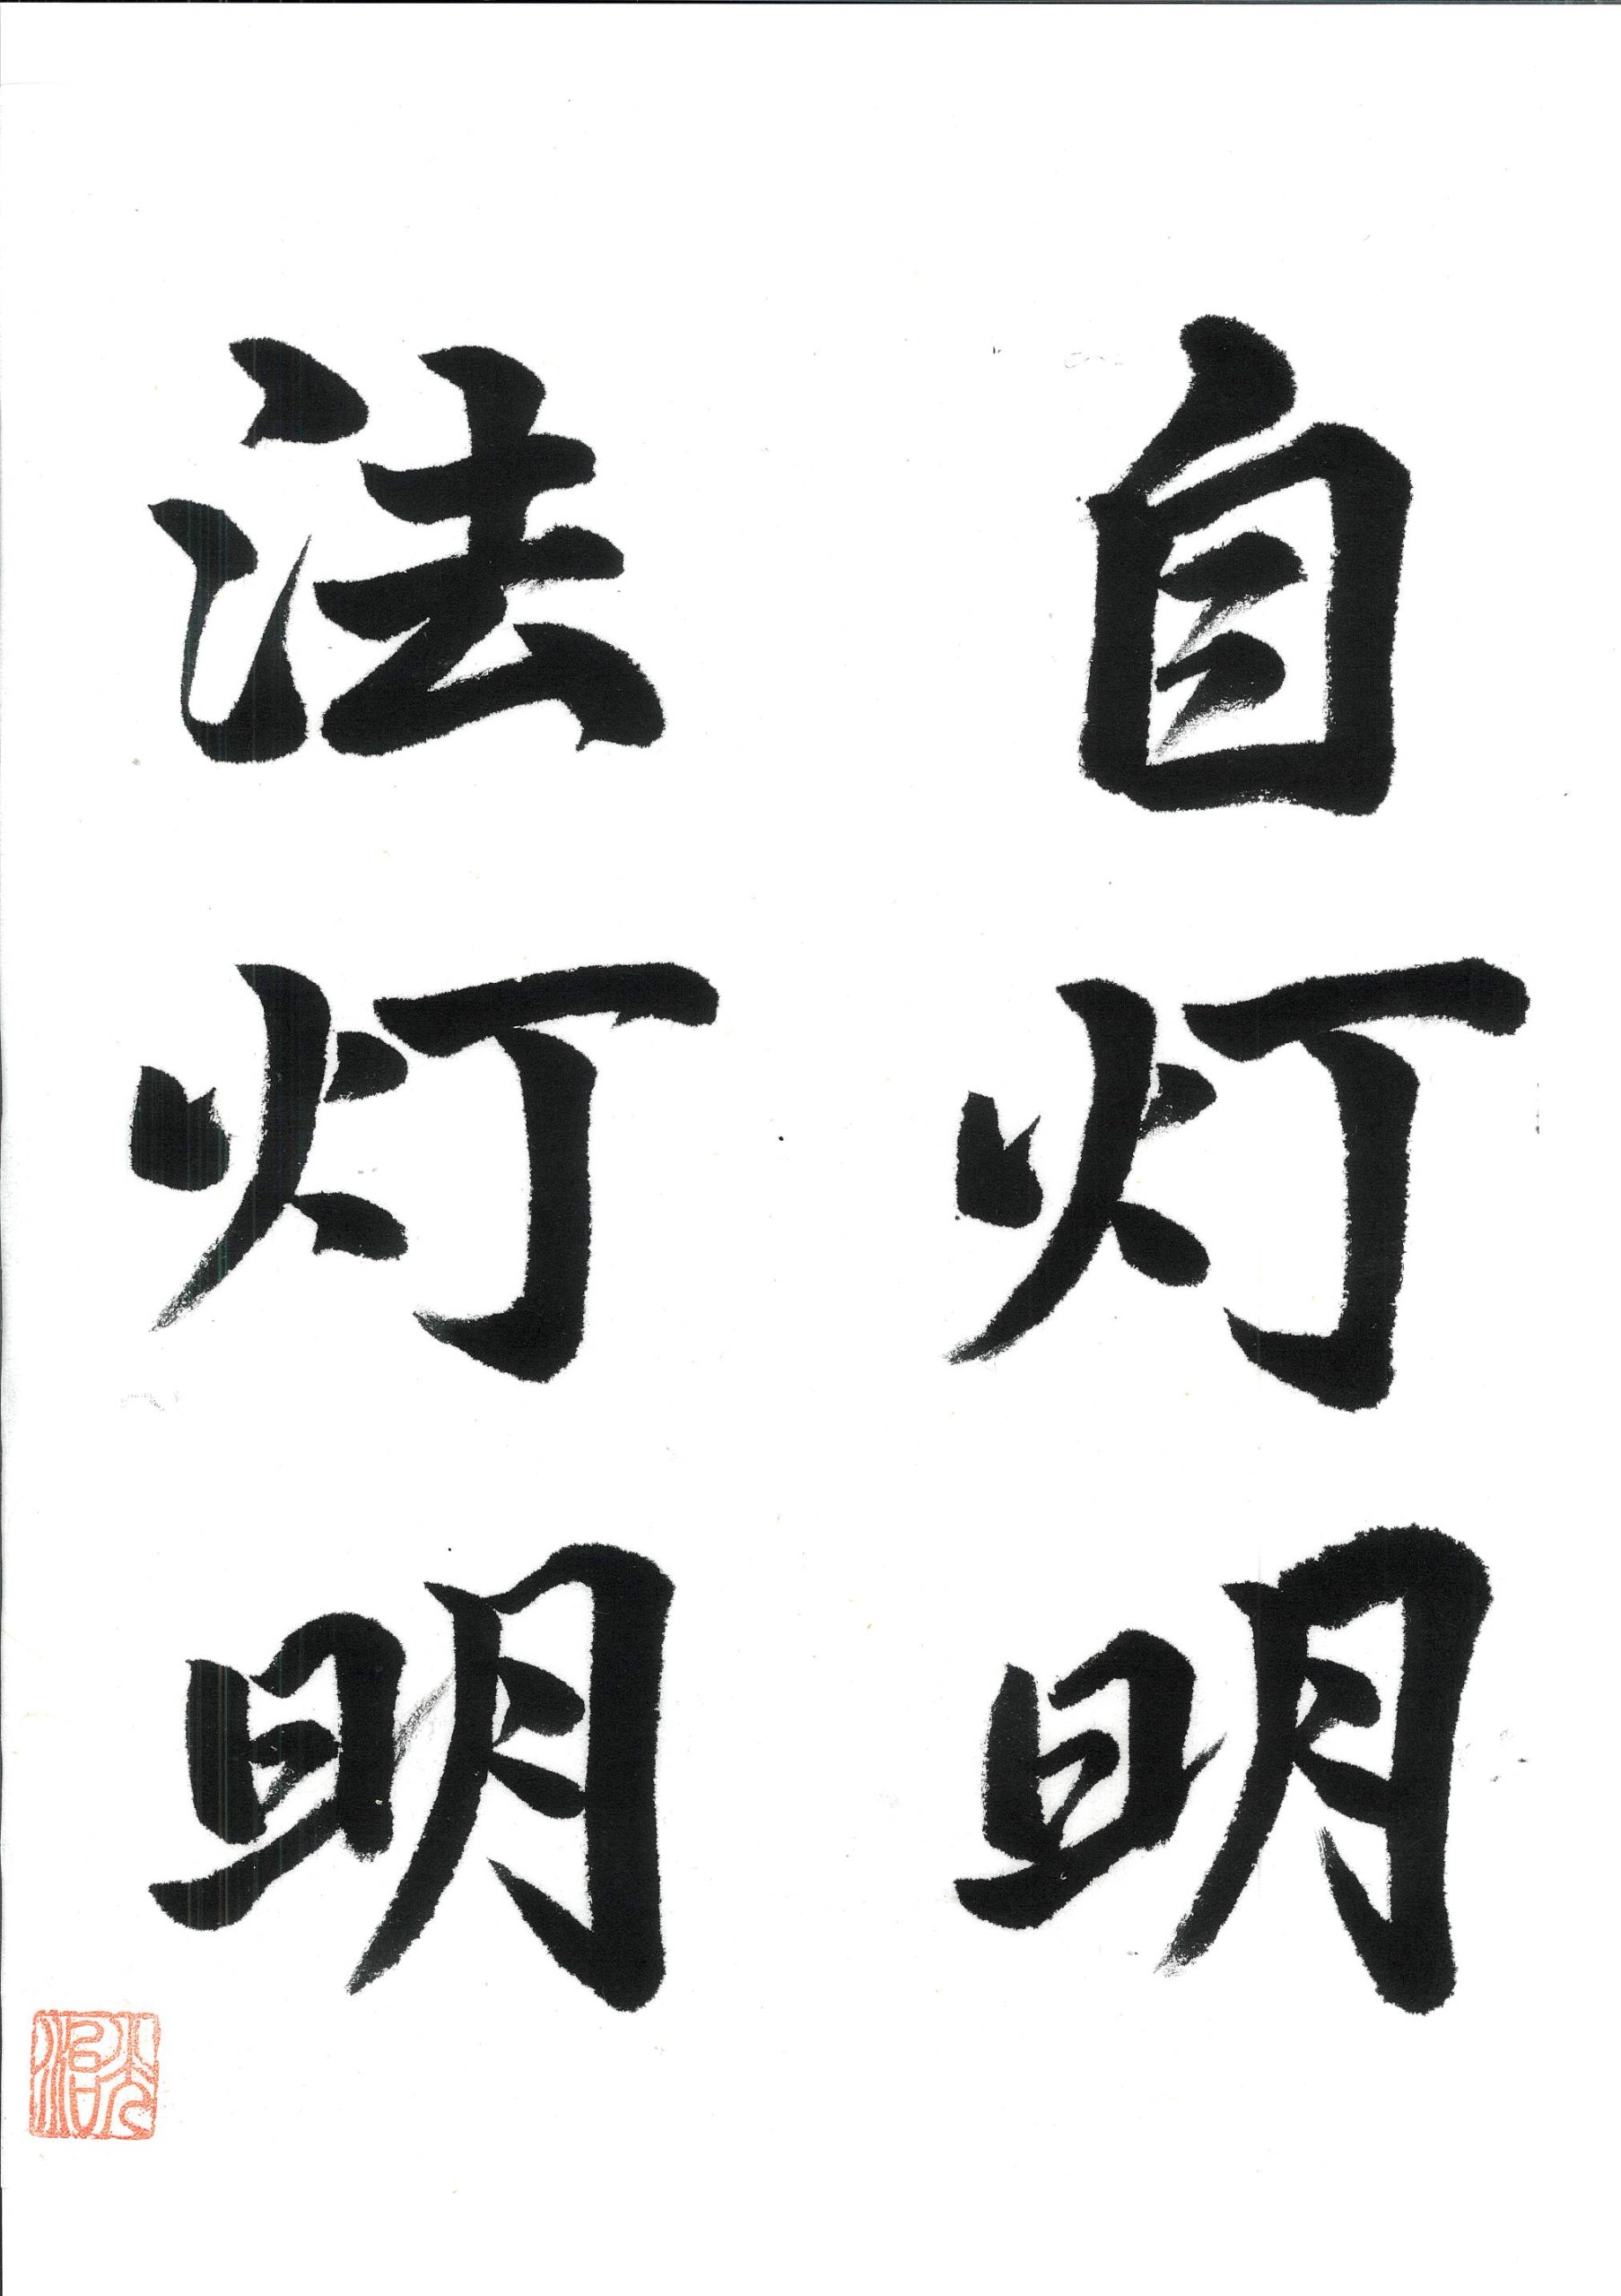 自灯明
法灯明